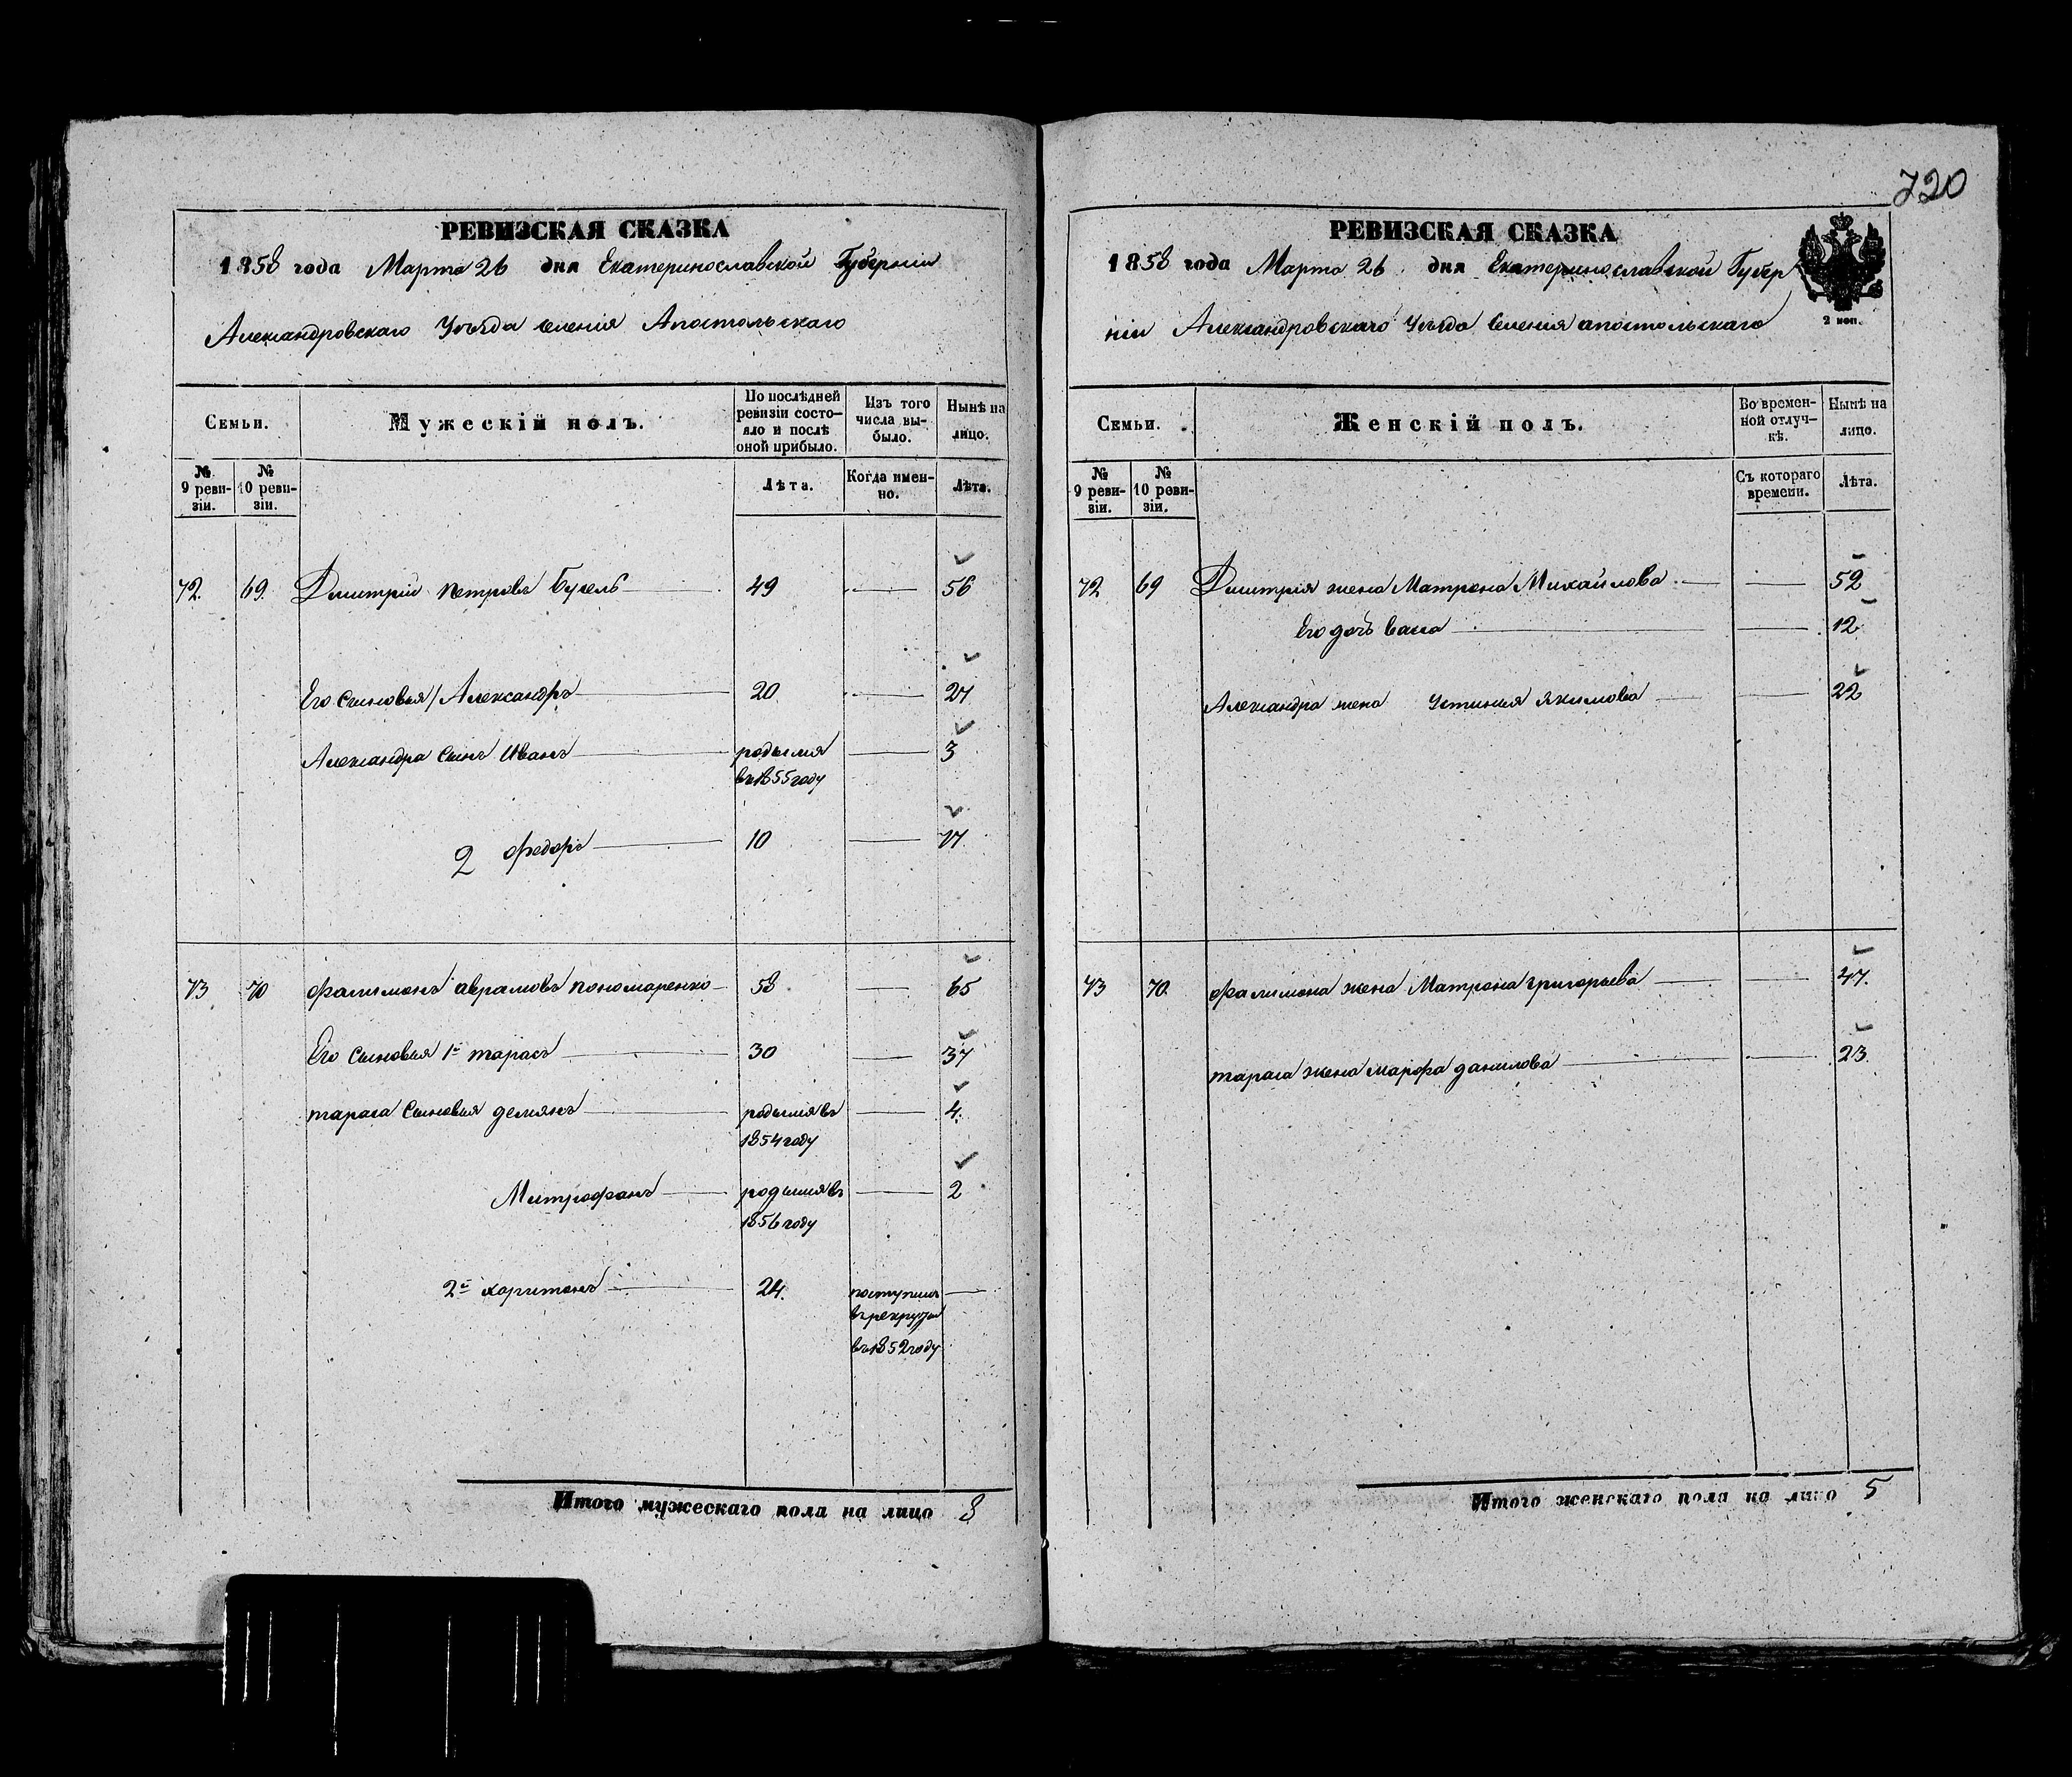 720
РЕВИЗСКАЯ СКАЗКА
1858 года Марта 26 дня Екатеринославской Губерніи
Александровскаго Уѣзда селенія Апостольскаго
Семьи.
Мужескій полъ.
По послѣдней ревизіи состояло и послѣ оной прибыло.
Изъ того числа выбыло.
Нынѣ на лицо.
№ 9 ревизіи.
№ 10 ревизіи.
Лѣта.
Когда именно.
Лѣта.
72. 69. Дмитрій Петровъ 49 56
Его Сыновья / Александръ 20 27
Александра Сынъ Иванъ родился 3
въ 1855 году
2 Федоръ 10 17
73 70 Фалимонъ аврамовъ пономаренко 58 65
Его Сыновья 1й тарасъ 30 37
тараса Сыновья демянъ родился въ 4.
1854 году
Митрофанъ родился въ 2
1856 году
2й харитонъ 24. поступилъ
въ рекруты
въ 1852 году
Итого мужескаго пола на лицо 8
РЕВИЗСКАЯ СКАЗКА
1858 года Марта 26 дня Екатеринославской Губер
ніи Александровскаго Уѣзда Селенія апостольскаго
2 коп.
Семьи.
Женскій полъ.
Во временной отлучкѣ.
Нынѣ на лицо.
№ 9 ревизіи.
№ 10 ревизіи.
Съ котораго времени.
Лѣта.
72 69 Дмитрія жена Матрона Михайлова 52
Его дочь васса 12
Александра жена Устинья Якимова 22
73 70. Фалимона жена Матрона григорьева 47.
тараса жена марфа данилова 23.
Итого женскаго пола на лицо 5